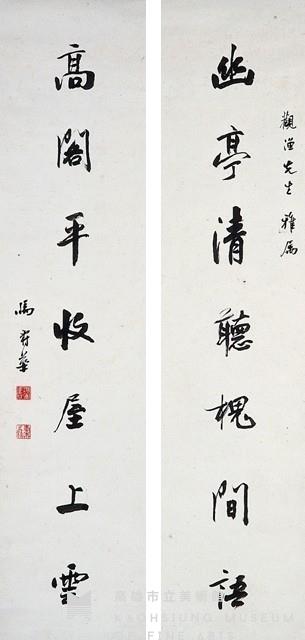 觀漁先生雅屬
幽亭清聽槐間語
高閣平收屋上雲
馬壽華
高雄市立美術館
KAOHSIUNG MUSEUM
OF FINE ARTS